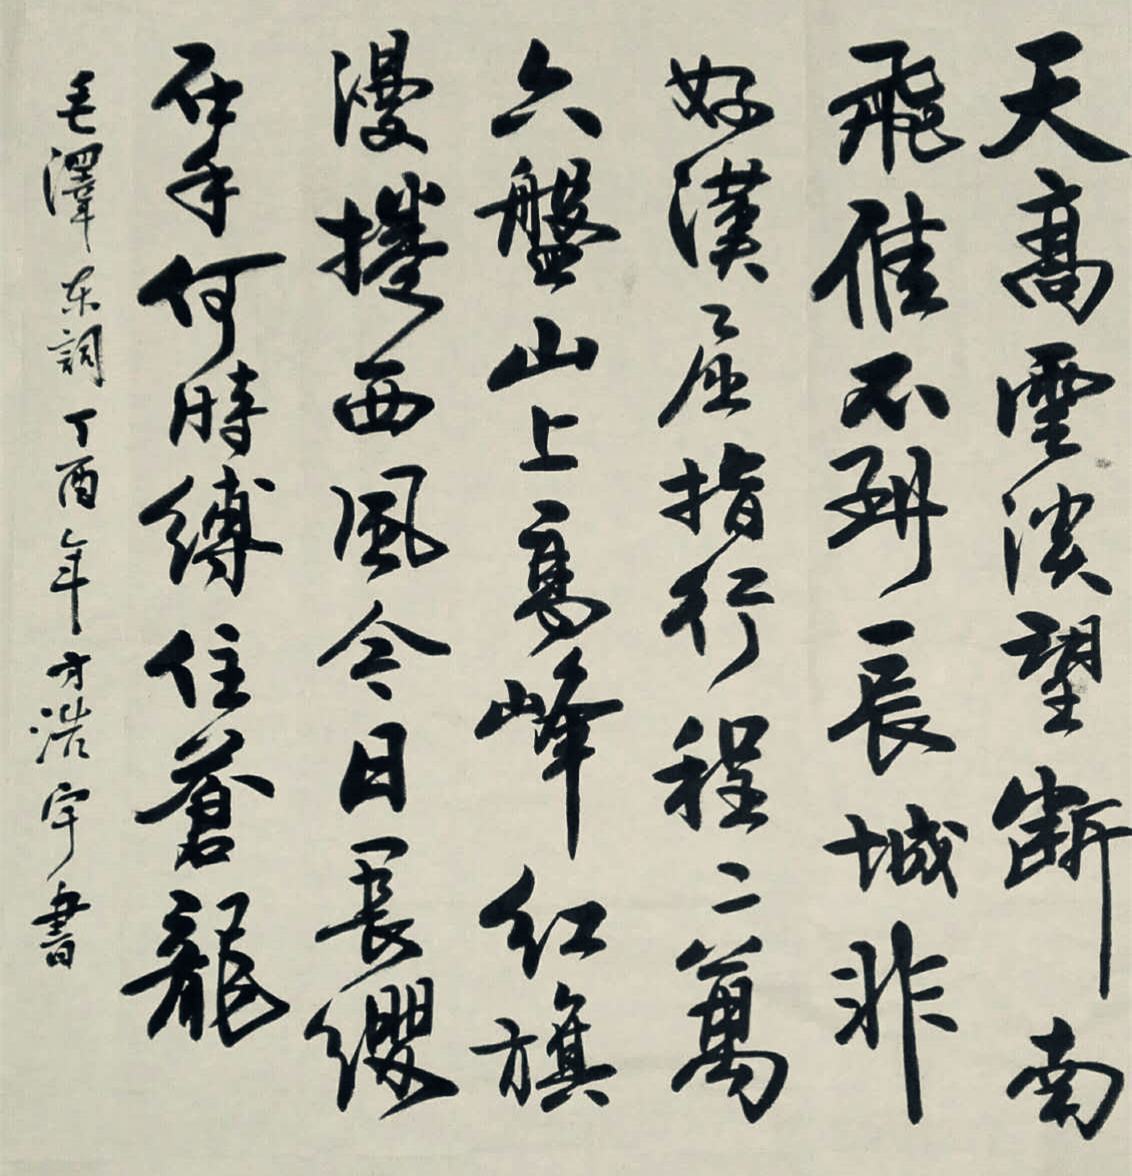 天髙雲淡望斷南
飛雁不到長城非
好漢屈指行程二萬
六盤山上高峰红旗
漫捲西風今日長纓
在手何時縛住蒼龍
毛澤东詞丁酉年方浩宇書